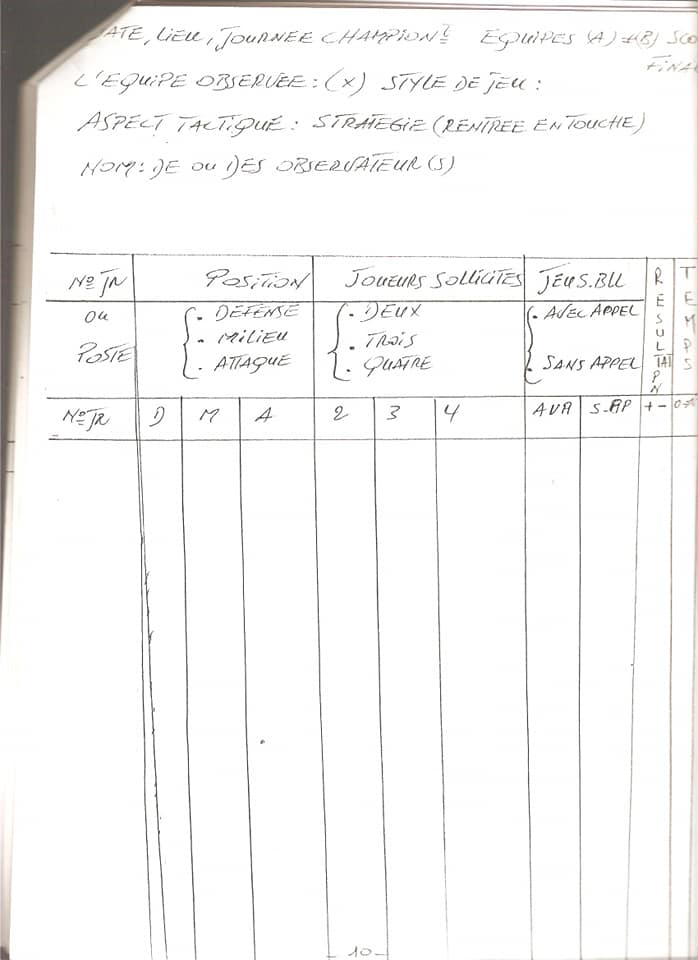 DATE, LIEU, JOURNEE CHAMPIONT EQUIPES (A) + (B) SCO
FINAL
L'EQUIPE OBSERVEE : (X) STYLE DE JEU :
ASPECT TACTIQUE : STRATEGIE (RENTREE EN TOUCHE)
NOM : DE OU DES OBSERVATEUR (S)
Nº JR POSITION JOUEURS SOLLICITES JEU S. BLL RESULTAT TEMPS
OU . DEFENSE . DEUX . AVEC APPEL
. MILIEU . TROIS
POSTE . ATTAQUE . QUATRE . SANS APPEL
Nº JR D M A 2 3 4 AVA S-AP + -
- 10 -